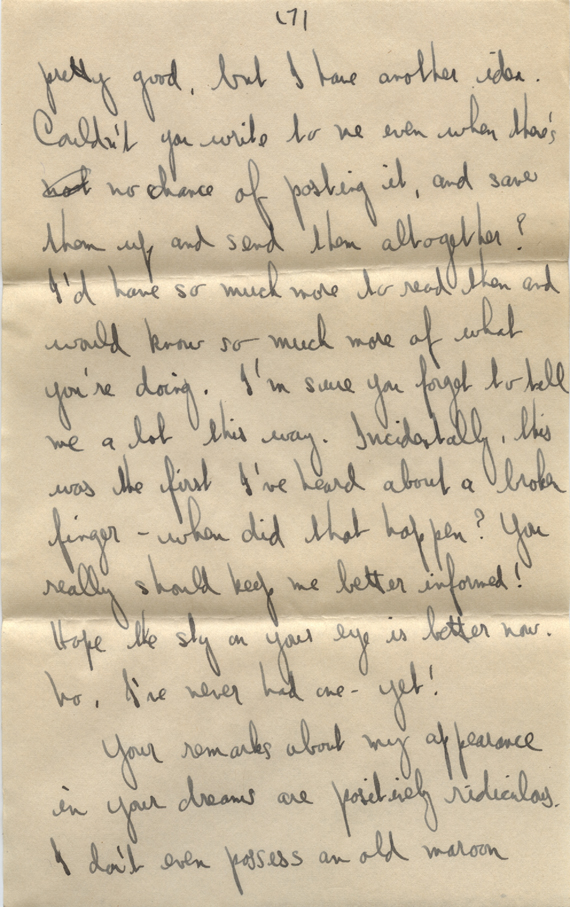 (7)
pretty good, but I have another idea.
Couldn't you write to me even when there's
not no chance of posting it, and save
them up and send them altogether?
I'd have so much more to read then and
would know so much more of what
you're doing. I'm sure you forget to tell
me a lot this way. Incidentally, this
was the first I've heard about a broken
finger - when did that happen? You
really should keep me better informed!
Hope the sty on your eye is better now.
No, I've never had one - yet!
Your remarks about my appearance
in your dreams are positively ridiculous.
I don't even possess an old maroon